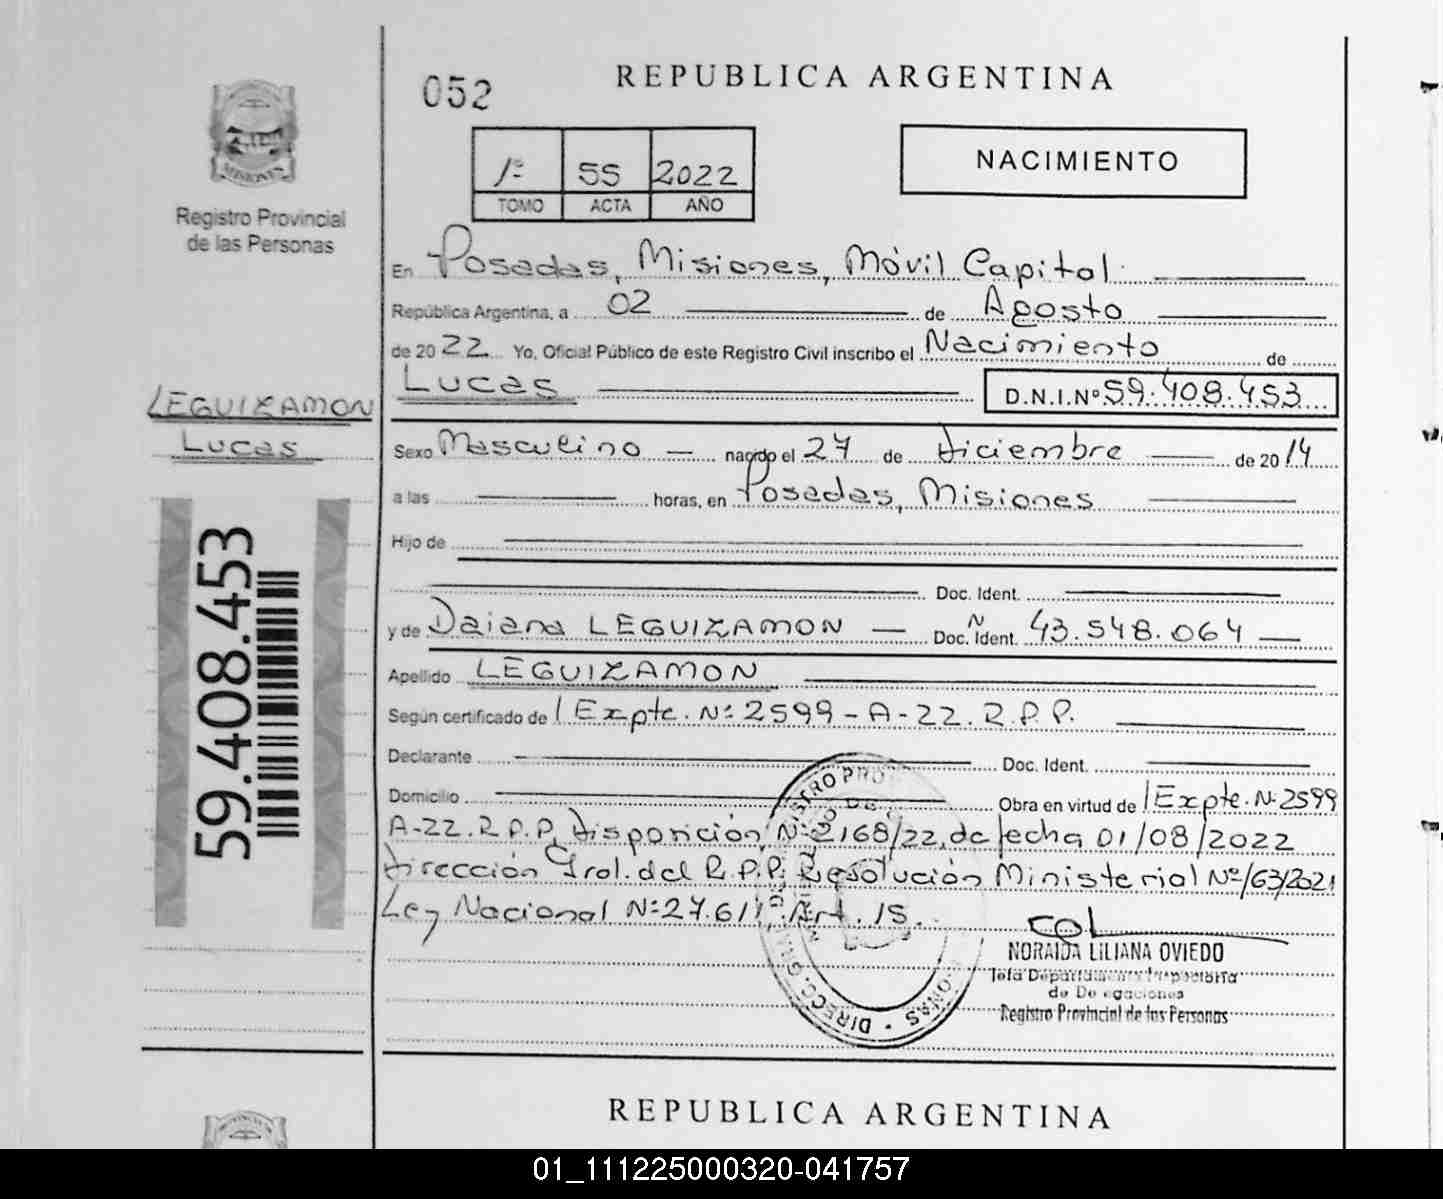 052
REPUBLICA ARGENTINA
NACIMIENTO
1º 55 2022
TOMO ACTA AÑO
MISIONES
Registro Provincial
de las Personas
En Posadas, Misiones, Móvil Capital.
República Argentina, a 02 de Agosto
de 2022 Yo, Oficial Público de este Registro Civil inscribo el Nacimiento de
Lucas D.N.I.Nº 59.408.453
LEGUIZAMON
Lucas
Sexo Masculino nacido el 27 de Diciembre de 2014
a las horas, en Posadas, Misiones
Hijo de
Doc. Ident.
y de Daiana LEGUIZAMON Doc. Ident. Nº 43.548.064
Apellido LEGUIZAMON
Según certificado de Expte. Nº 2599-A-22.R.P.P.
Declarante Doc. Ident.
Domicilio Obra en virtud de Expte. Nº 2599
A-22.R.P.P. Disposición Nº 2168/22, de fecha 01/08/2022
Dirección Gral. del R.P.P. Resolución Ministerial Nº 163/2021
Ley Nacional Nº 27.611, Art. 15.
59.408.453
NORAIDA LILIANA OVIEDO
Jefa Departamento Inspectoría
de Delegaciones
Registro Provincial de las Personas
REPUBLICA ARGENTINA
01_111225000320-041757